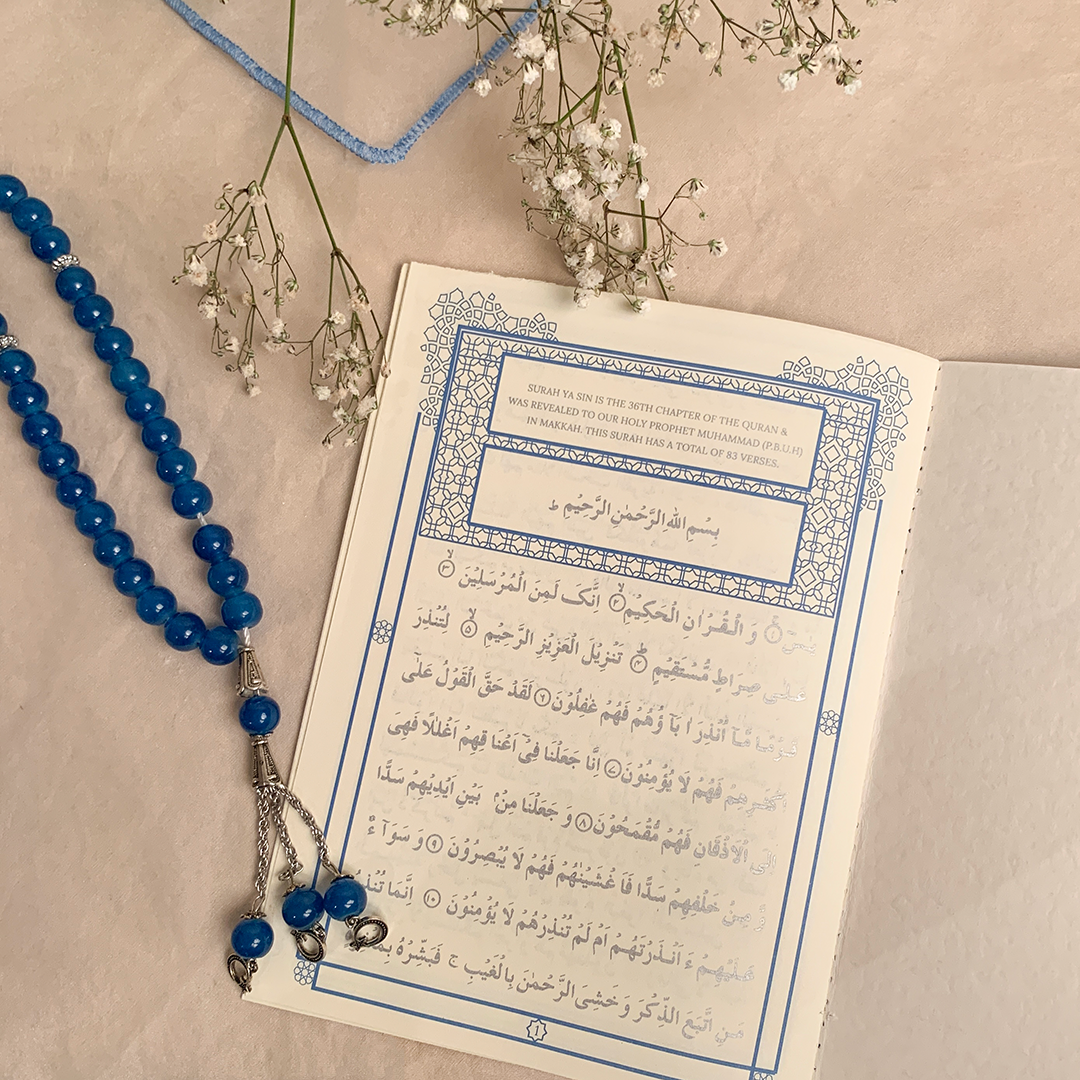 SURAH YA SIN IS THE 36TH CHAPTER OF THE QURAN &
WAS REVEALED TO OUR HOLY PROPHET MUHAMMAD (P.B.U.H)
IN MAKKAH. THIS SURAH HAS A TOTAL OF 83 VERSES.
بِسْمِ اللهِ الرَّحْمٰنِ الرَّحِيْمِ ط
يٰسٓ ۚ ۝۱ وَ الْقُرْاٰنِ الْحَكِيْمِ ۙ ۝۲ اِنَّكَ لَمِنَ الْمُرْسَلِيْنَ ۙ ۝۳
عَلٰى صِرَاطٍ مُّسْتَقِيْمٍ ؕ ۝۴ تَنْزِيْلَ الْعَزِيْزِ الرَّحِيْمِ ۙ ۝۵ لِتُنْذِرَ
قَوْمًا مَّاۤ اُنْذِرَ اٰبَآؤُهُمْ فَهُمْ غٰفِلُوْنَ ۝۶ لَقَدْ حَقَّ الْقَوْلُ عَلٰٓى
اَكْثَرِهِمْ فَهُمْ لَا يُؤْمِنُوْنَ ۝۷ اِنَّا جَعَلْنَا فِيْۤ اَعْنَا قِهِمْ اَغْلٰلًا فَهِىَ
اِلَى الْاَذْقَانِ فَهُمْ مُّقْمَحُوْنَ ۝۸ وَ جَعَلْنَا مِنْۢ بَيْنِ اَيْدِيْهِمْ سَدًّا
وَّ مِنْ خَلْفِهِمْ سَدًّا فَاَ غْشَيْنٰهُمْ فَهُمْ لَا يُبْصِرُوْنَ ۝۹ وَ سَوَآ ءٌ
عَلَيْهِمْ ءَ اَنْذَرْتَهُمْ اَمْ لَمْ تُنْذِرْهُمْ لَا يُؤْمِنُوْنَ ۝۱۰ اِنَّمَا
مَنِ اتَّبَعَ الذِّكْرَ وَ خَشِىَ الرَّحْمٰنَ بِالْغَيْبِ ۚ فَبَشِّرْهُ
1